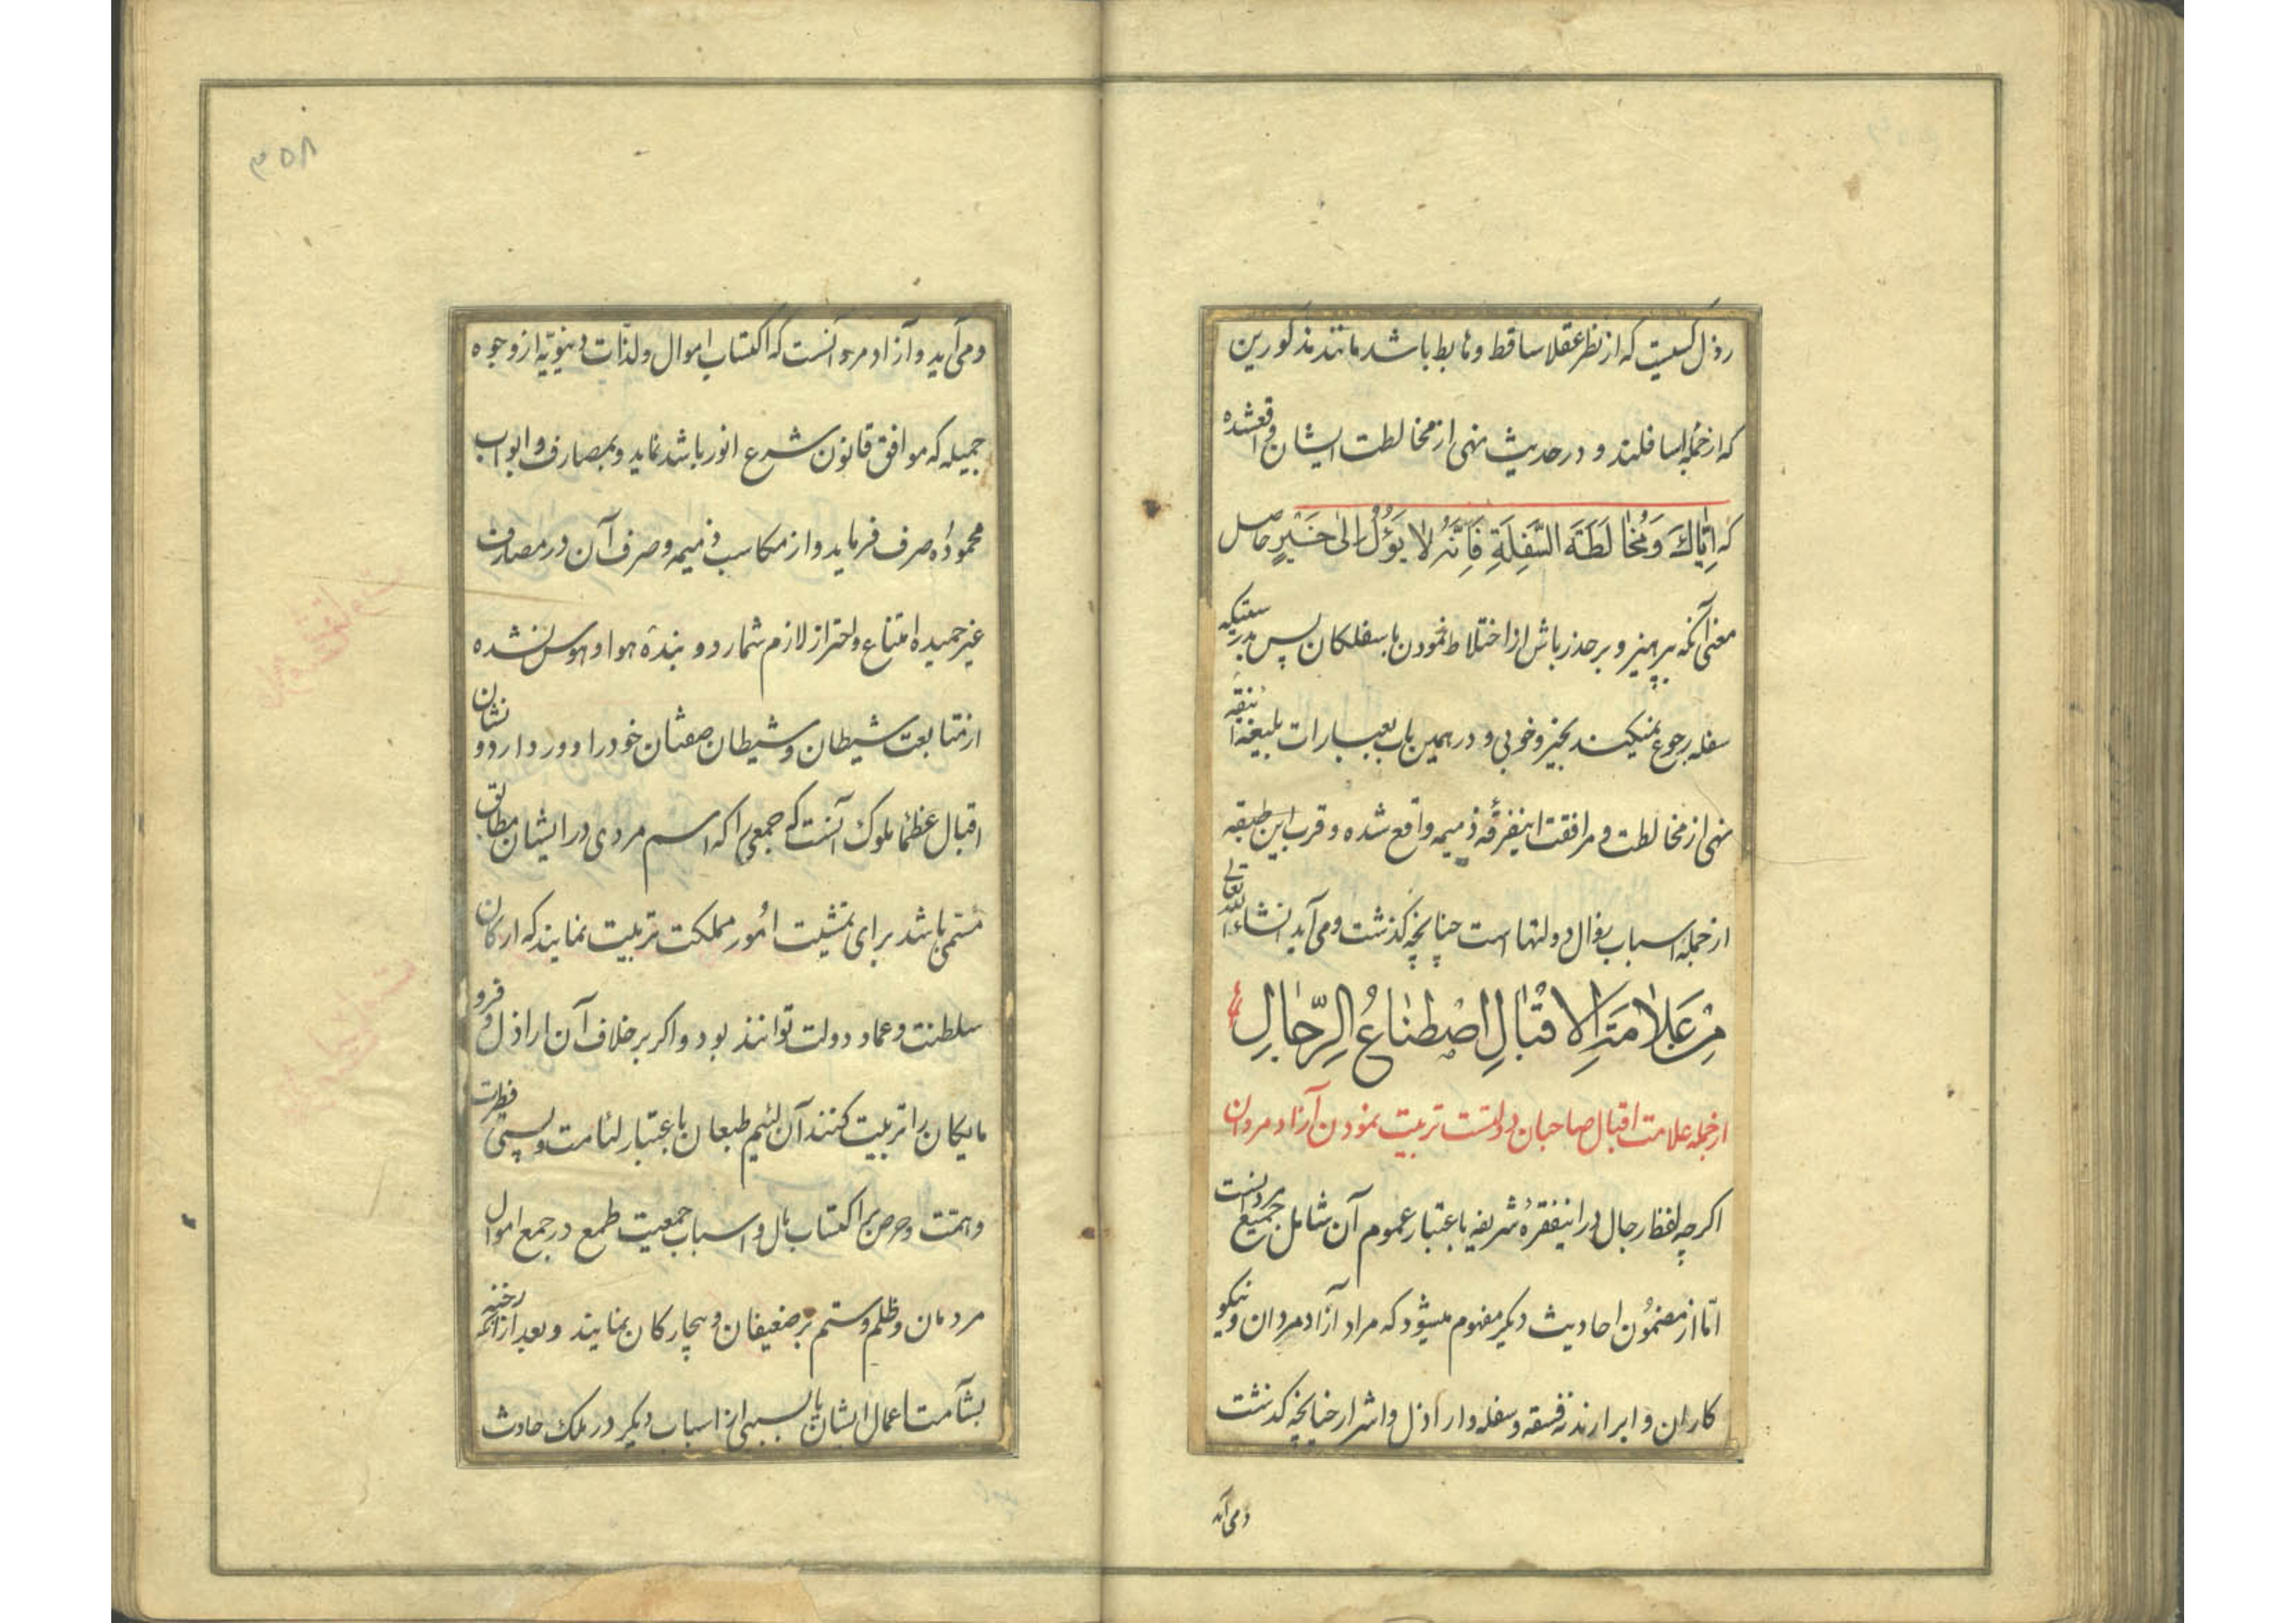 رذل کسیست که از نظر عقلا ساقط و هابط باشد مانند مذکورین
که از جمله اسافلند و در حدیث نهی از مخالطت ایشان واقعشده
که اِیّاكَ وَ مُخالَطَةَ السَّفِلَةِ فَاِنَّهُ لا یَؤُلُ اِلیٰ خَیْرٍ حاصل
معنی آنکه بپرهیز و بر حذر باش از اختلاط نمودن با سفلکان پس بدرستیکه
سفله رجوع نمیکنند بخیر و خوبی و در همین باب بعبارات بلیغهٔ انیقه
نهی از مخالطت و مرافقت اینفرقهٔ ذمیمه واقع شده و قرب این طبقه
از جملهٔ اسباب زوال دولتها است چنانچه گذشت و می آید انشاءالله تعالی
مِنْ عَلاٰمَةِ الاِقْبٰالِ اصْطِنٰاعُ الرِّجٰالِ
از جمله علامت اقبال صاحبان دولتست تربیت نمودن آزاد مردان
اکرچه لفظ رجال در اینفقرهٔ شریفه باعتبار عموم آن شامل جمیع مردانست
امّا از مضمون احادیث دیکر مفهوم میشود که مراد آزاد مردان و نیکو
کاران و ابرارند نه فسقه و سفله و اراذل و اشرار چنانچه گذشت
و می آید
۳۵۸
و می آید و آزاد مرد آنست که اکتساب اموال و لذّات دنیویّه از وجوه
جمیله که موافق قانون شرع انور باشد نماید و بمصارف و ابواب
محموده صرف فرماید و از مکاسب ذمیمه و صرف آن در مصارف
غیر حمیده امتناع و احتراز لازم شمارد و بندهٔ هوا و هوس نشده
از متابعت شیطان و شیطان صفتان خود را دور دارد و نشان
اقبال عظماء ملوک آنست که جمعی را که اسم مردی در ایشان مطابق
مسمّی باشد برای تمشیت امُور مملکت تربیت نمایند که ارکان
سلطنت و عماد دولت توانند بود و اکر بر خلاف آن اراذل و فرو
مایکان را تربیت کنند آن لئیم طبعان باعتبار لئامت و پستی فطرت
و همّت و حرص بر اکتساب مال و اسباب جمعیت طمع در جمع اموال
مردمان و ظلم و ستم بر ضعیفان و بیچارکان نمایند و بعد از آنکه رخنه
بشآمت اعمال ایشان یا بسببی از اسباب دیکر در ملک حادث